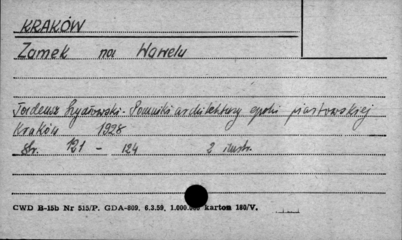 KRAKÓW
Zamek na Wawelu
Tadeusz Szydłowski - Pomniki architektury epoki piastowskiej
Kraków 1928
Str. 121 - 124 2 ilustr.
CWD B-15b Nr 515/P. GDA-809, 6.3.59, 1.000.000 karton 180/V.